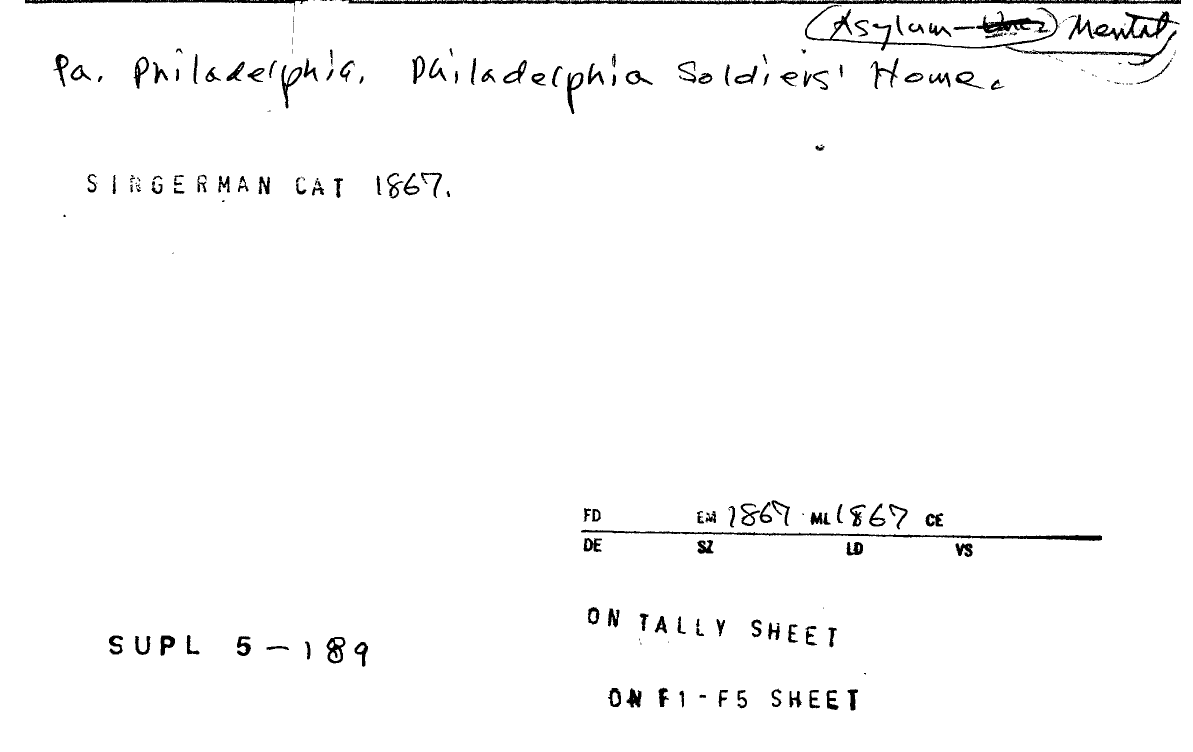 Asylum- Mental
Pa. Philadelphia. Philadelphia Soldiers' Home.
SINGERMAN CAT 1867.
FD EM 1867 ML 1867 CE
DE SZ LD VS
ON TALLY SHEET
SUPL 5-189
ON F1-F5 SHEET